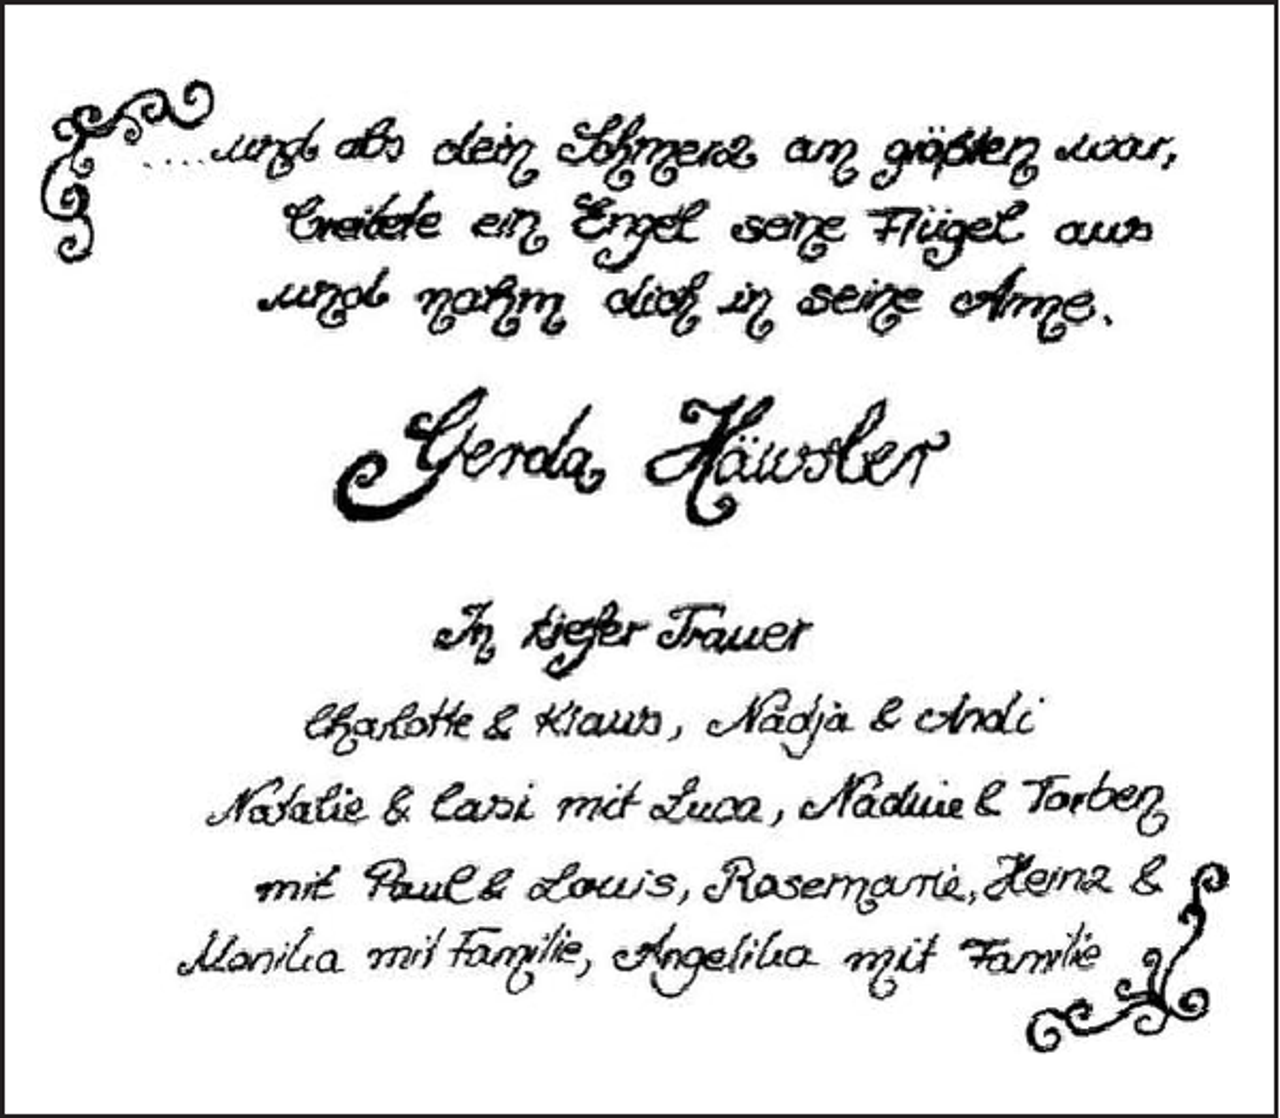 ....und als dein Schmerz am größten war,
breitete ein Engel seine Flügel aus
und nahm dich in seine Arme.
Gerda Häusler
In tiefer Trauer
Charlotte & Klaus, Nadja & Andi
Natalie & Casi mit Luca, Nadine & Torben
mit Paul & Louis, Rosemarie, Heinz &
Monika mit Familie, Angelika mit Familie